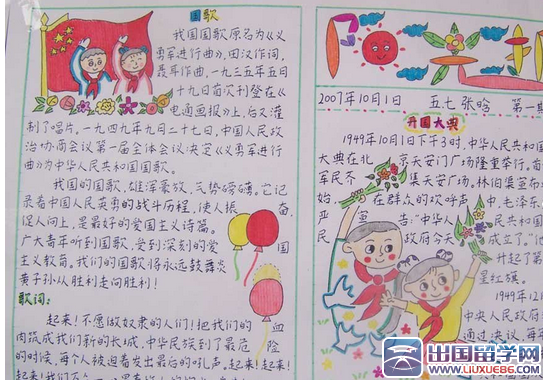 国歌
我国国歌原名为《义
勇军进行曲》，田汉作词，
聂耳作曲，一九三五年五月
十九日首次刊登在《
电通画报》上，后又灌
制了唱片。一九四九年九月二十七日，中国人民政
治协商会议第一届全体会议决定《义勇军进行
曲》为中华人民共和国国歌。
我国的国歌，雄浑豪放，气势磅礴。它记
录着中国人民英勇的战斗历程，使人振奋，
促人向上，是最好的爱国主义诗篇。
广大青年听到国歌，受到深刻的爱国
主义教育。我们的国歌将永远鼓舞炎
黄子孙从胜利走向胜利！
歌词：
起来！不愿做奴隶的人们！把我们的血
肉筑成我们新的长城，中华民族到了最危险
的时候，每个人被迫着发出最后的吼声。起来！起来！
2007年10月1日 五七 张晗 第一期
开国大典
1949年10月1日下午3时，中华人民共
大典在北京天安门广场隆重举行。首
军民齐集天安门广场。林伯渠宣布
始，在群众的欢呼声中，毛泽东
严宣告："中华人民共和国
民政府今天成立了。"
升起了第
星红旗。
1949年12月
中央人民政府
通过决议，每年
出国留学网
WWW.LIUXUE86.COM